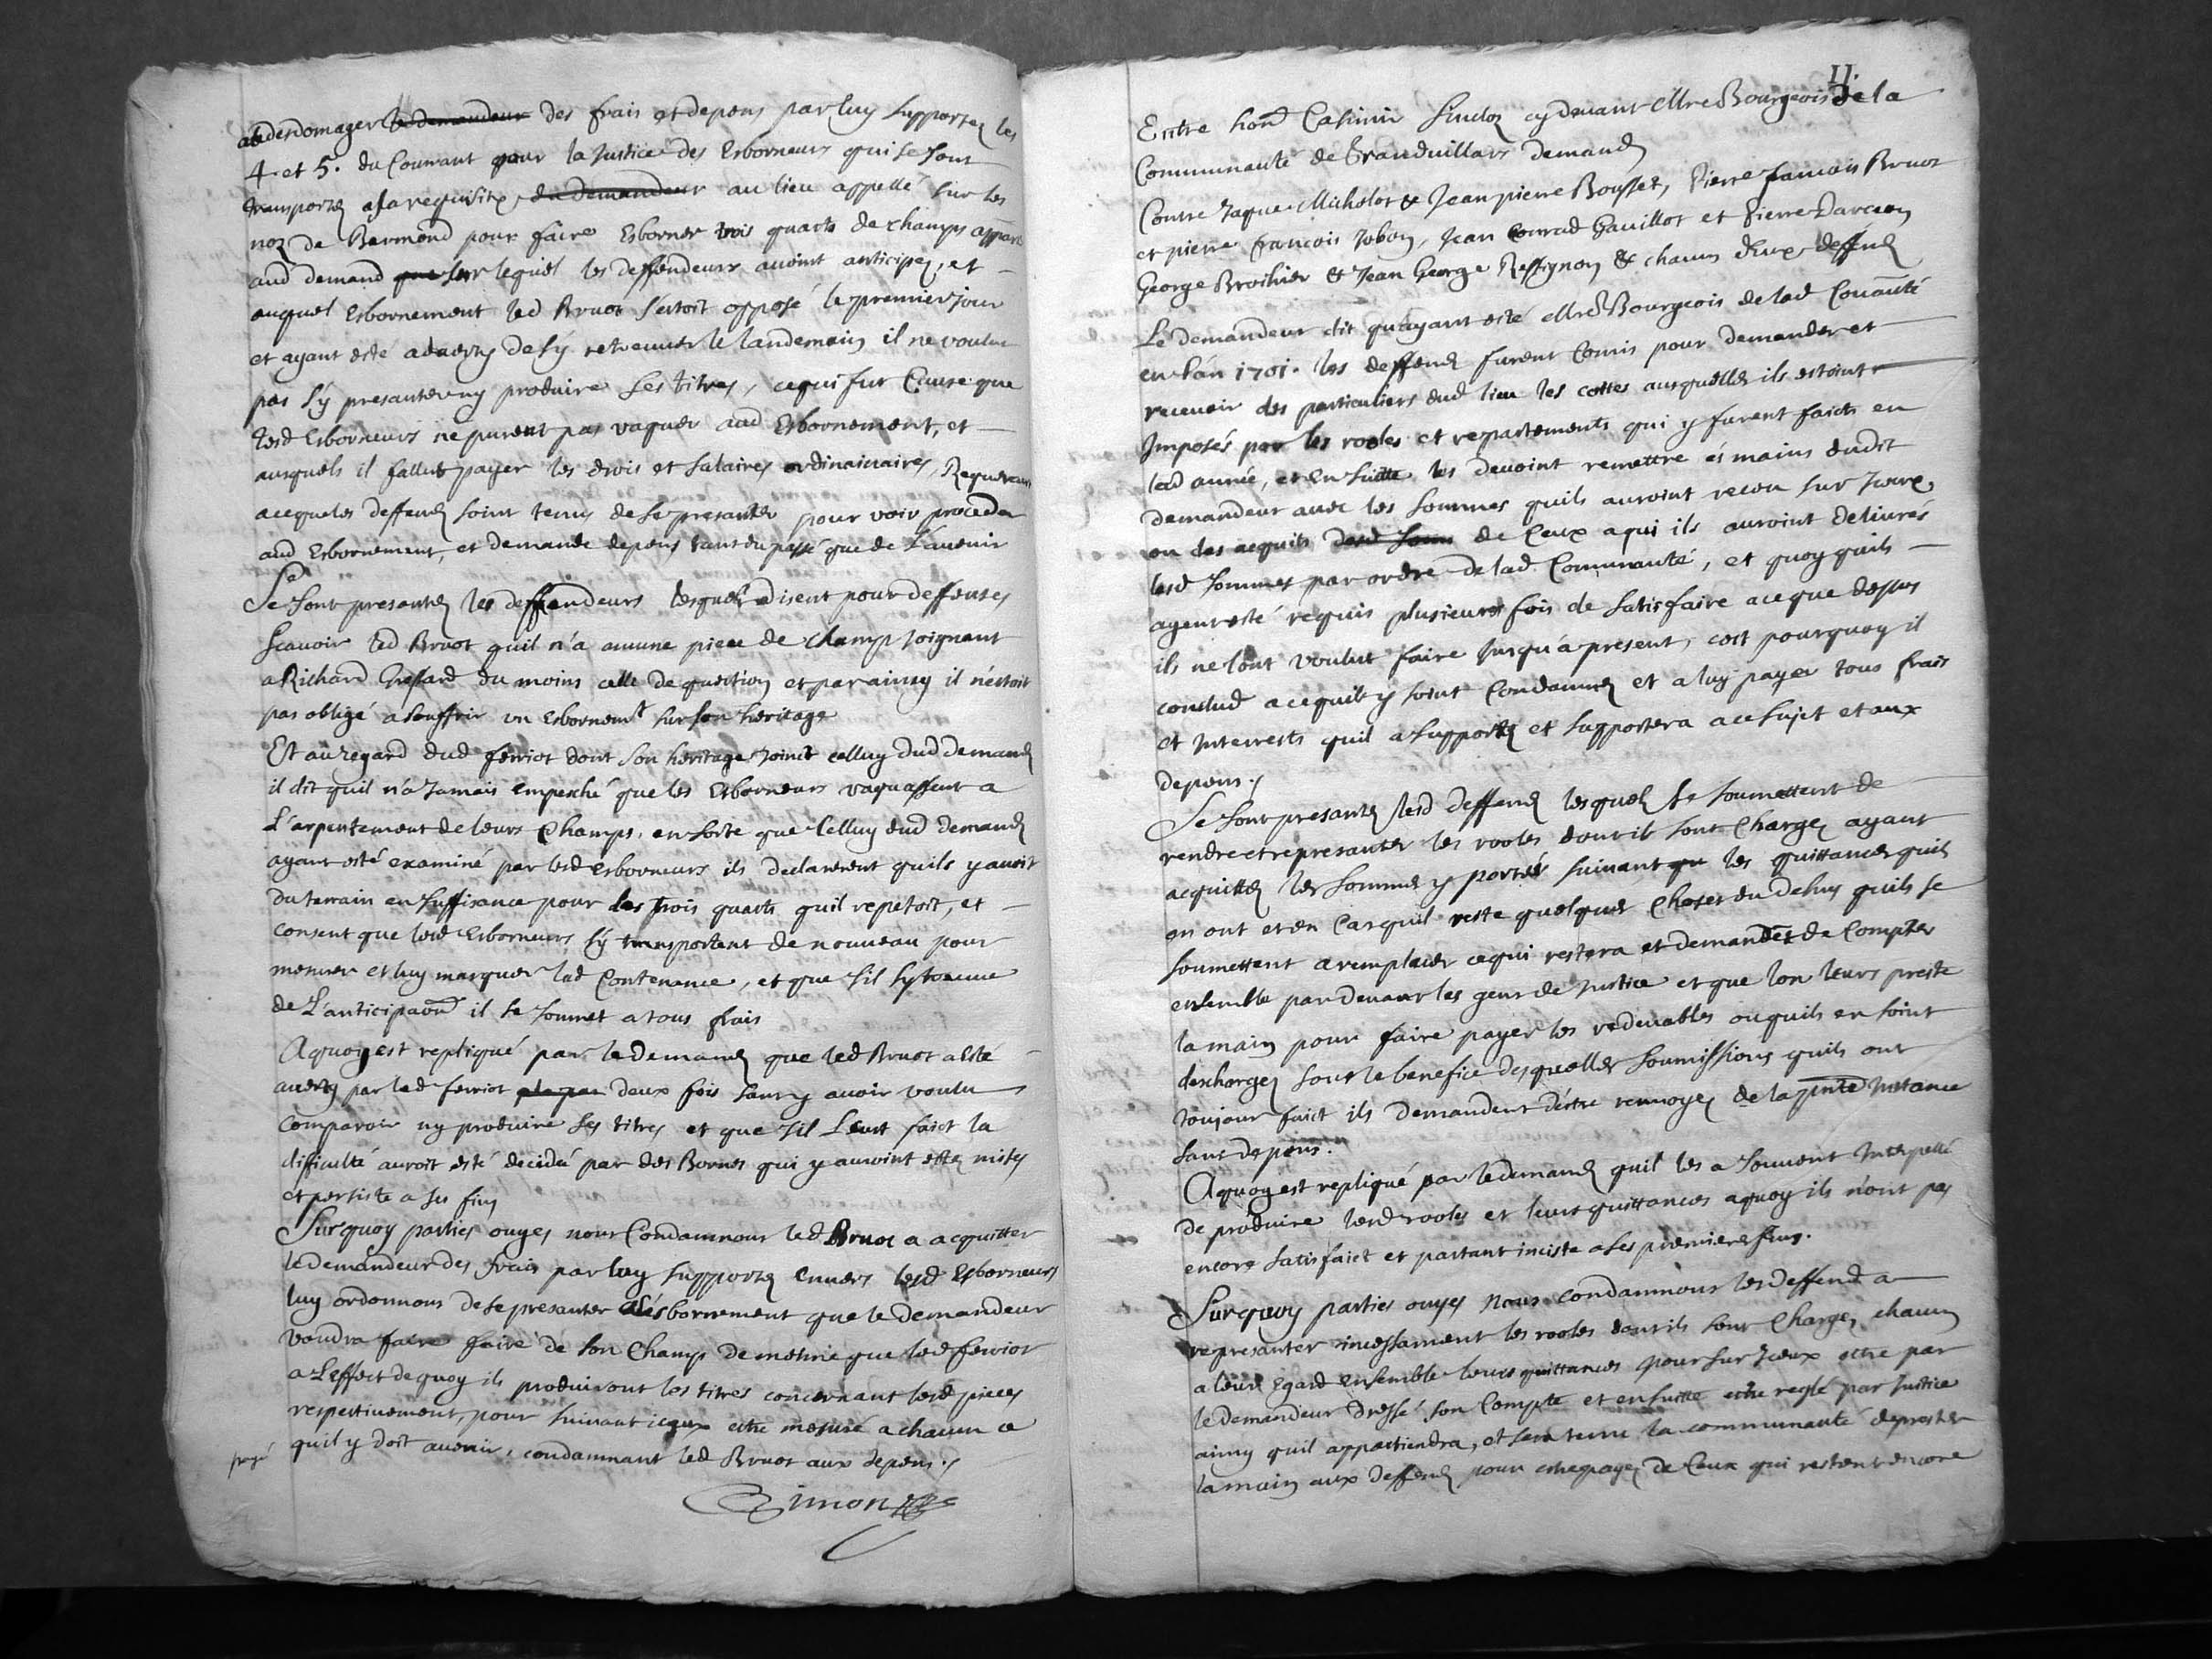 a desdomager le demandeur des frais et depens par luy supportez les
4. et 5. du Courant pour la Justice des Esborneurs qui se sont
transportez a sa requisitõn du demandeur au lieu appellé sur les
noz de Bermond pour faire Esborner trois quarts de champs appart
aud demand que sur lequel les deffendeurs avoint anticipez, et
auquel Esbornement led Bruot s'estoit opposé le premier jour
et ayant esté adverty de s'y retrouver le landemain il ne voulut
pas s'y presanter ny produire ses titres, ce qui fut Cause que
lesd Esborneurs ne purent pas vaquer aud Esbornement, et
ausquels il fallut payer les drois et salaires ordinainaires, Requerant
a ce que les deffend soint tenus de se presanter pour voir proceder
aud Esbornement, et demande depens tant du passé que de l'avenir
Se sont presantez les deffendeurs lesquels disent pour deffenses
scavoir led Bruot quil n'a aucune piece de champ joignant
a Richard du moins celle de question et par ainsy il n'estoit
pas obligé a souffrir un Esbornemt sur son heritage
Et au regard dud ferriot dont son heritage joint celluy dud demand
il dit quil n'a Jamais empesché que les Esborneurs vaquassent a
L'arpentement de leurs Champs, en sorte que celluy dud demand
ayant esté examiné par lesd Esborneurs ils declarerent quils y avoit
du terrain en suffisance pour les trois quarts quil repetoit, et
consent que lesd Esborneurs s'y transportent de nouveau pour
mesurer et luy marquer lad Contenance, et que s'il s'y trouve
de L'anticipaõn il se soumet a tous frais
A quoy est repliqué par le demand que led Bruot a esté
averty par led ferriot deux fois sans y avoir voulu
comparoir ny produire ses titres et que s'il L'eust faict la
difficulté auroit esté decidée par des Bornes qui y auroint estez mises
et persiste a ses fins
Surquoy parties ouyes nous Condamnons led Bruot a acquitter
le demandeur des frais par luy supportez envers lesd Esborneurs
luy ordonnons de se presanter a l'esbornement que le demandeur
voudra faire faire de son Champ de mesme que led ferriot
a L'effect de quoy ils produiront les titres concernant lesd pieces
respectivement, pour suivant iceux estre mesuré a chacun ce
quil y doit avenir, condamnant led Bruot aux depens.
payé
Simon
11.
Entre hond Casimir Sindoz cydevant Mre Bourgeois de la
Communauté de Grandvillars demand
Contre Jaque Michelot & Jean pierre Boysset, Pierre francois Bruot
et pierre francois Jobon, Jean Conrad Gavillot et Pierre Darceon
George Broihier & Jean George Ressignon & chacun d'eux deffend
Le demandeur dit qu'ayant esté Mre Bourgeois de lad Comãuté
en l'an 1701. les deffend furent Comis pour demander et
recevoir des particuliers dud lieu les cottes ausquelles ils estoint
Imposés par les rooles et repartements qui y furent faicts en
lad année, et en suitte les devoint remettre és mains dudit
demandeur avec les sommes quils auroint receu sur Iceux,
ou des acquits desd som de Ceux a qui ils auroint delivrés
lesd sommes par ordre de lad Communauté, et quoy quils
ayent esté requis plusieurs fois de satisfaire a ce que dessus
ils ne l'ont voulut faire Jusqu'a present, cest pourquoy il
conclud a ce quils y soint Condamnez et a luy payer tous frais
et Interrests quil a supportez et supportera a ce sujet et aux
depens.
Se sont presantez lesd deffend lesquels se soumettent de
rendre et representer les rooles dont ils sont Chargez ayant
acquittez les sommes y portés suivant que les quittances quils
en ont et en Cas quil reste quelques Choses du dehus quils se
soumettent a remplacer ce qui restera et demandet de Compter
ensemble par devant les gens de Justice et que lon leurs preste
la main pour faire payer les redevables ou quils en soint
deschargez sous le benefice desquelles soumissions quils ont
toujour faict ils demandent d'estre renvoyez de la pnte Instance
sans depens.
A quoy est repliqué par le demand quil les a souvent Interpellé
de produire lesd rooles et leurs quittances a quoy ils n'ont pas
encore satisfaict et partant inciste a ses premieres fins.
Surquoy parties ouyes nous condamnons les deffend a
representer incessament les rooles dont ils sont Chargez chacun
a leurs Egard ensemble leurs quittances pour sur Iceux estre par
le demandeur dressé son Compte et ensuitte estre reglé par Justice
ainsy quil appartiendra, et sera tenu la communauté de prester
la main aux deffend pour estre payez de Ceux qui restent encore